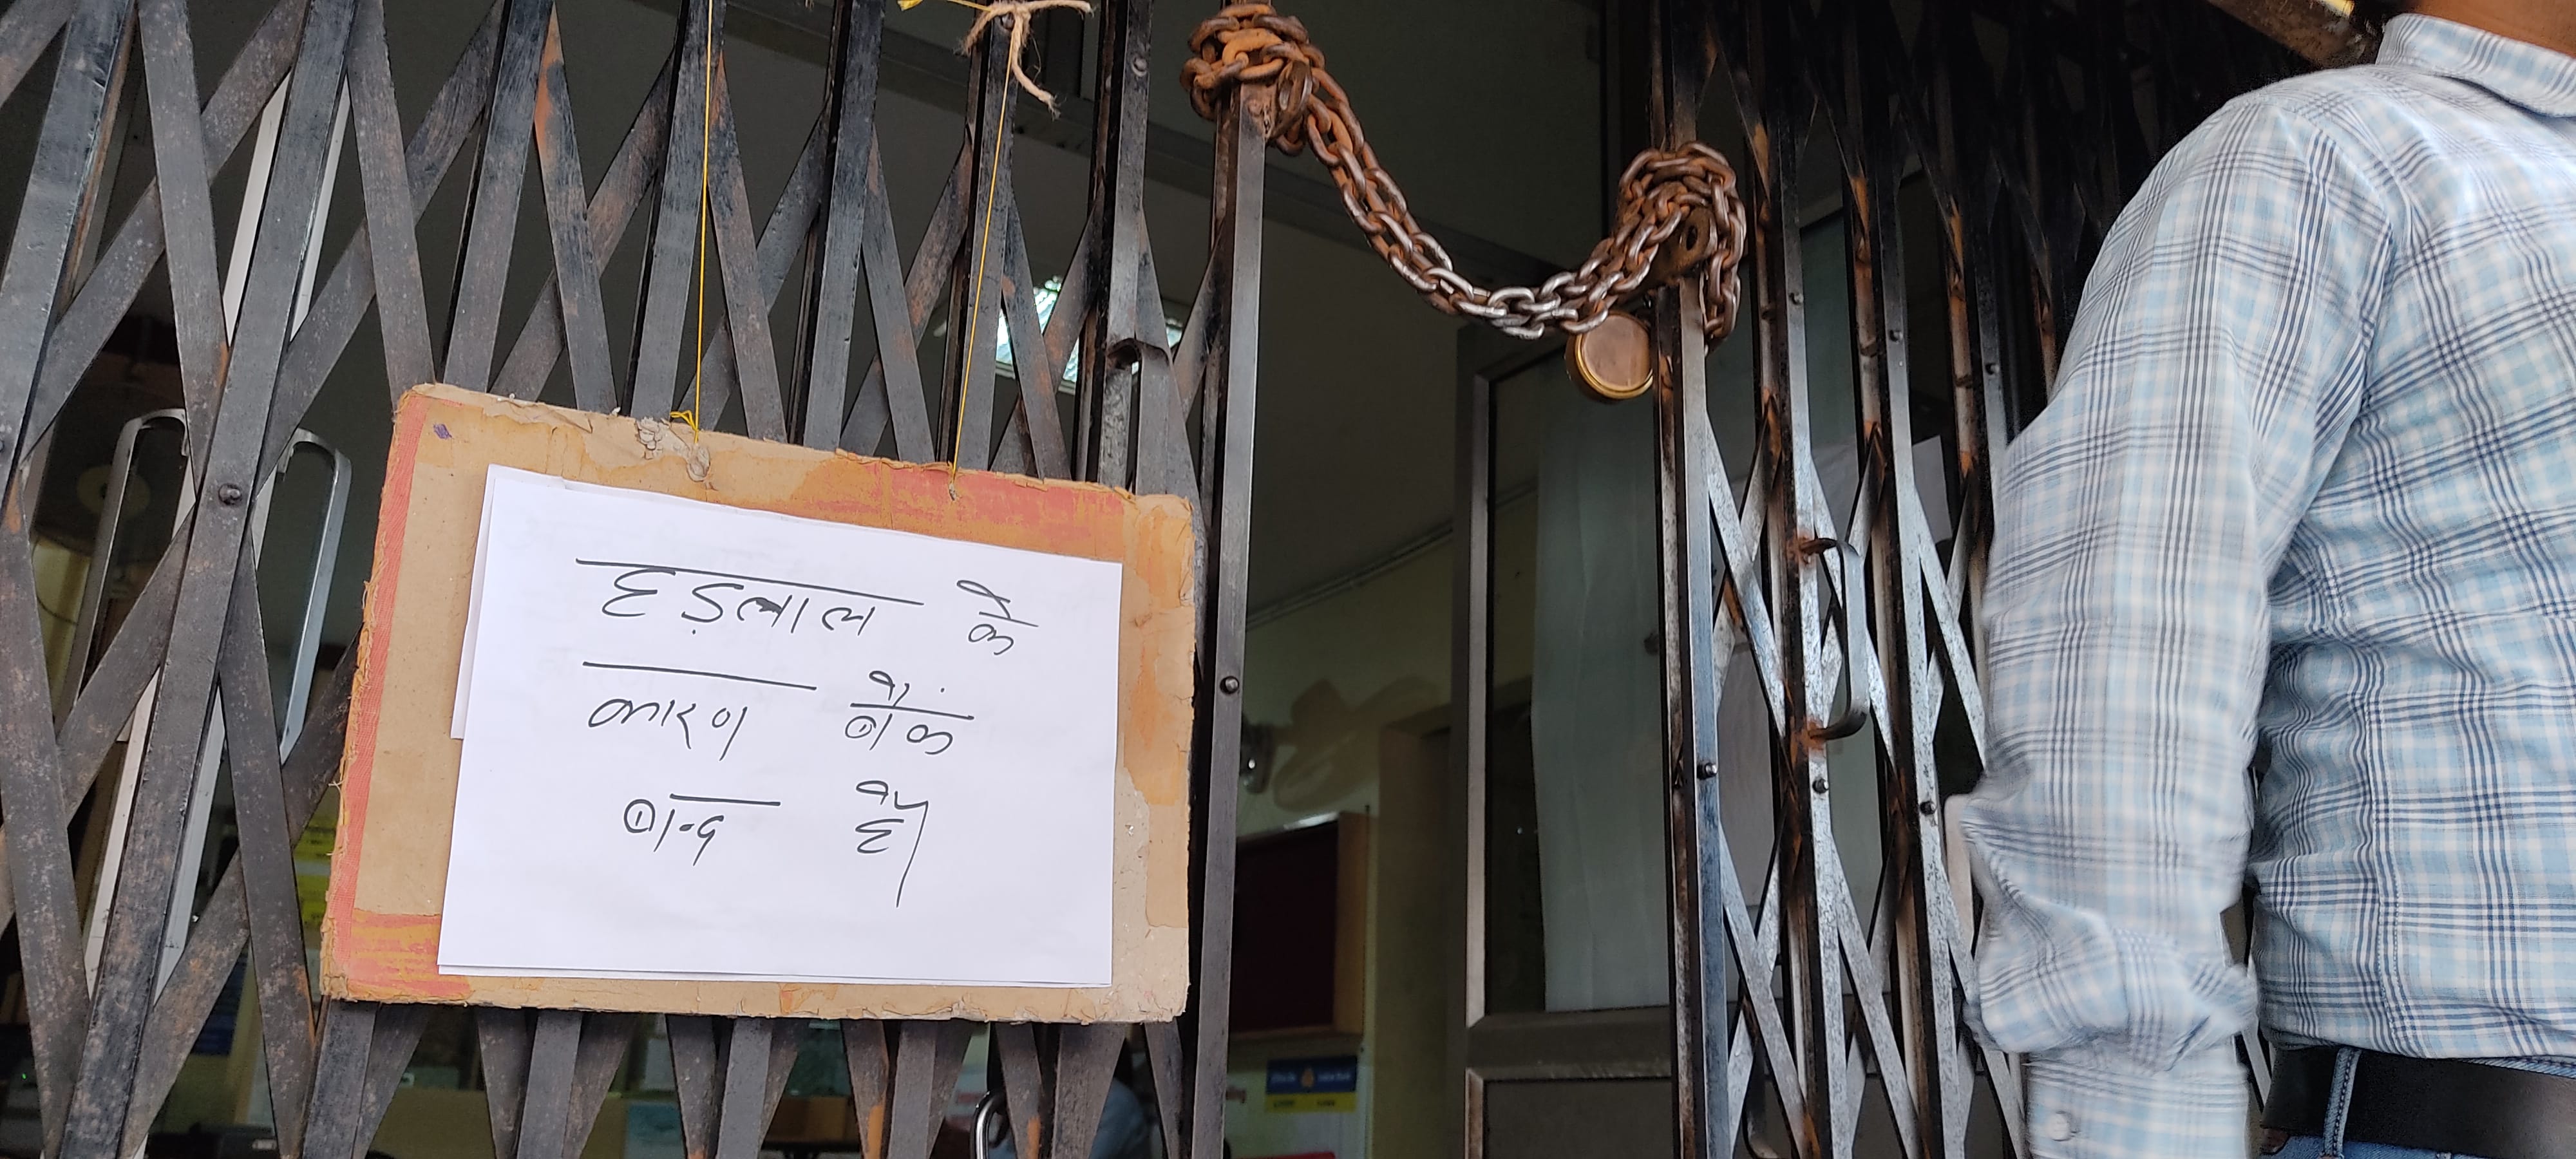 हड़ताल के
कारण बैंक
बन्द है